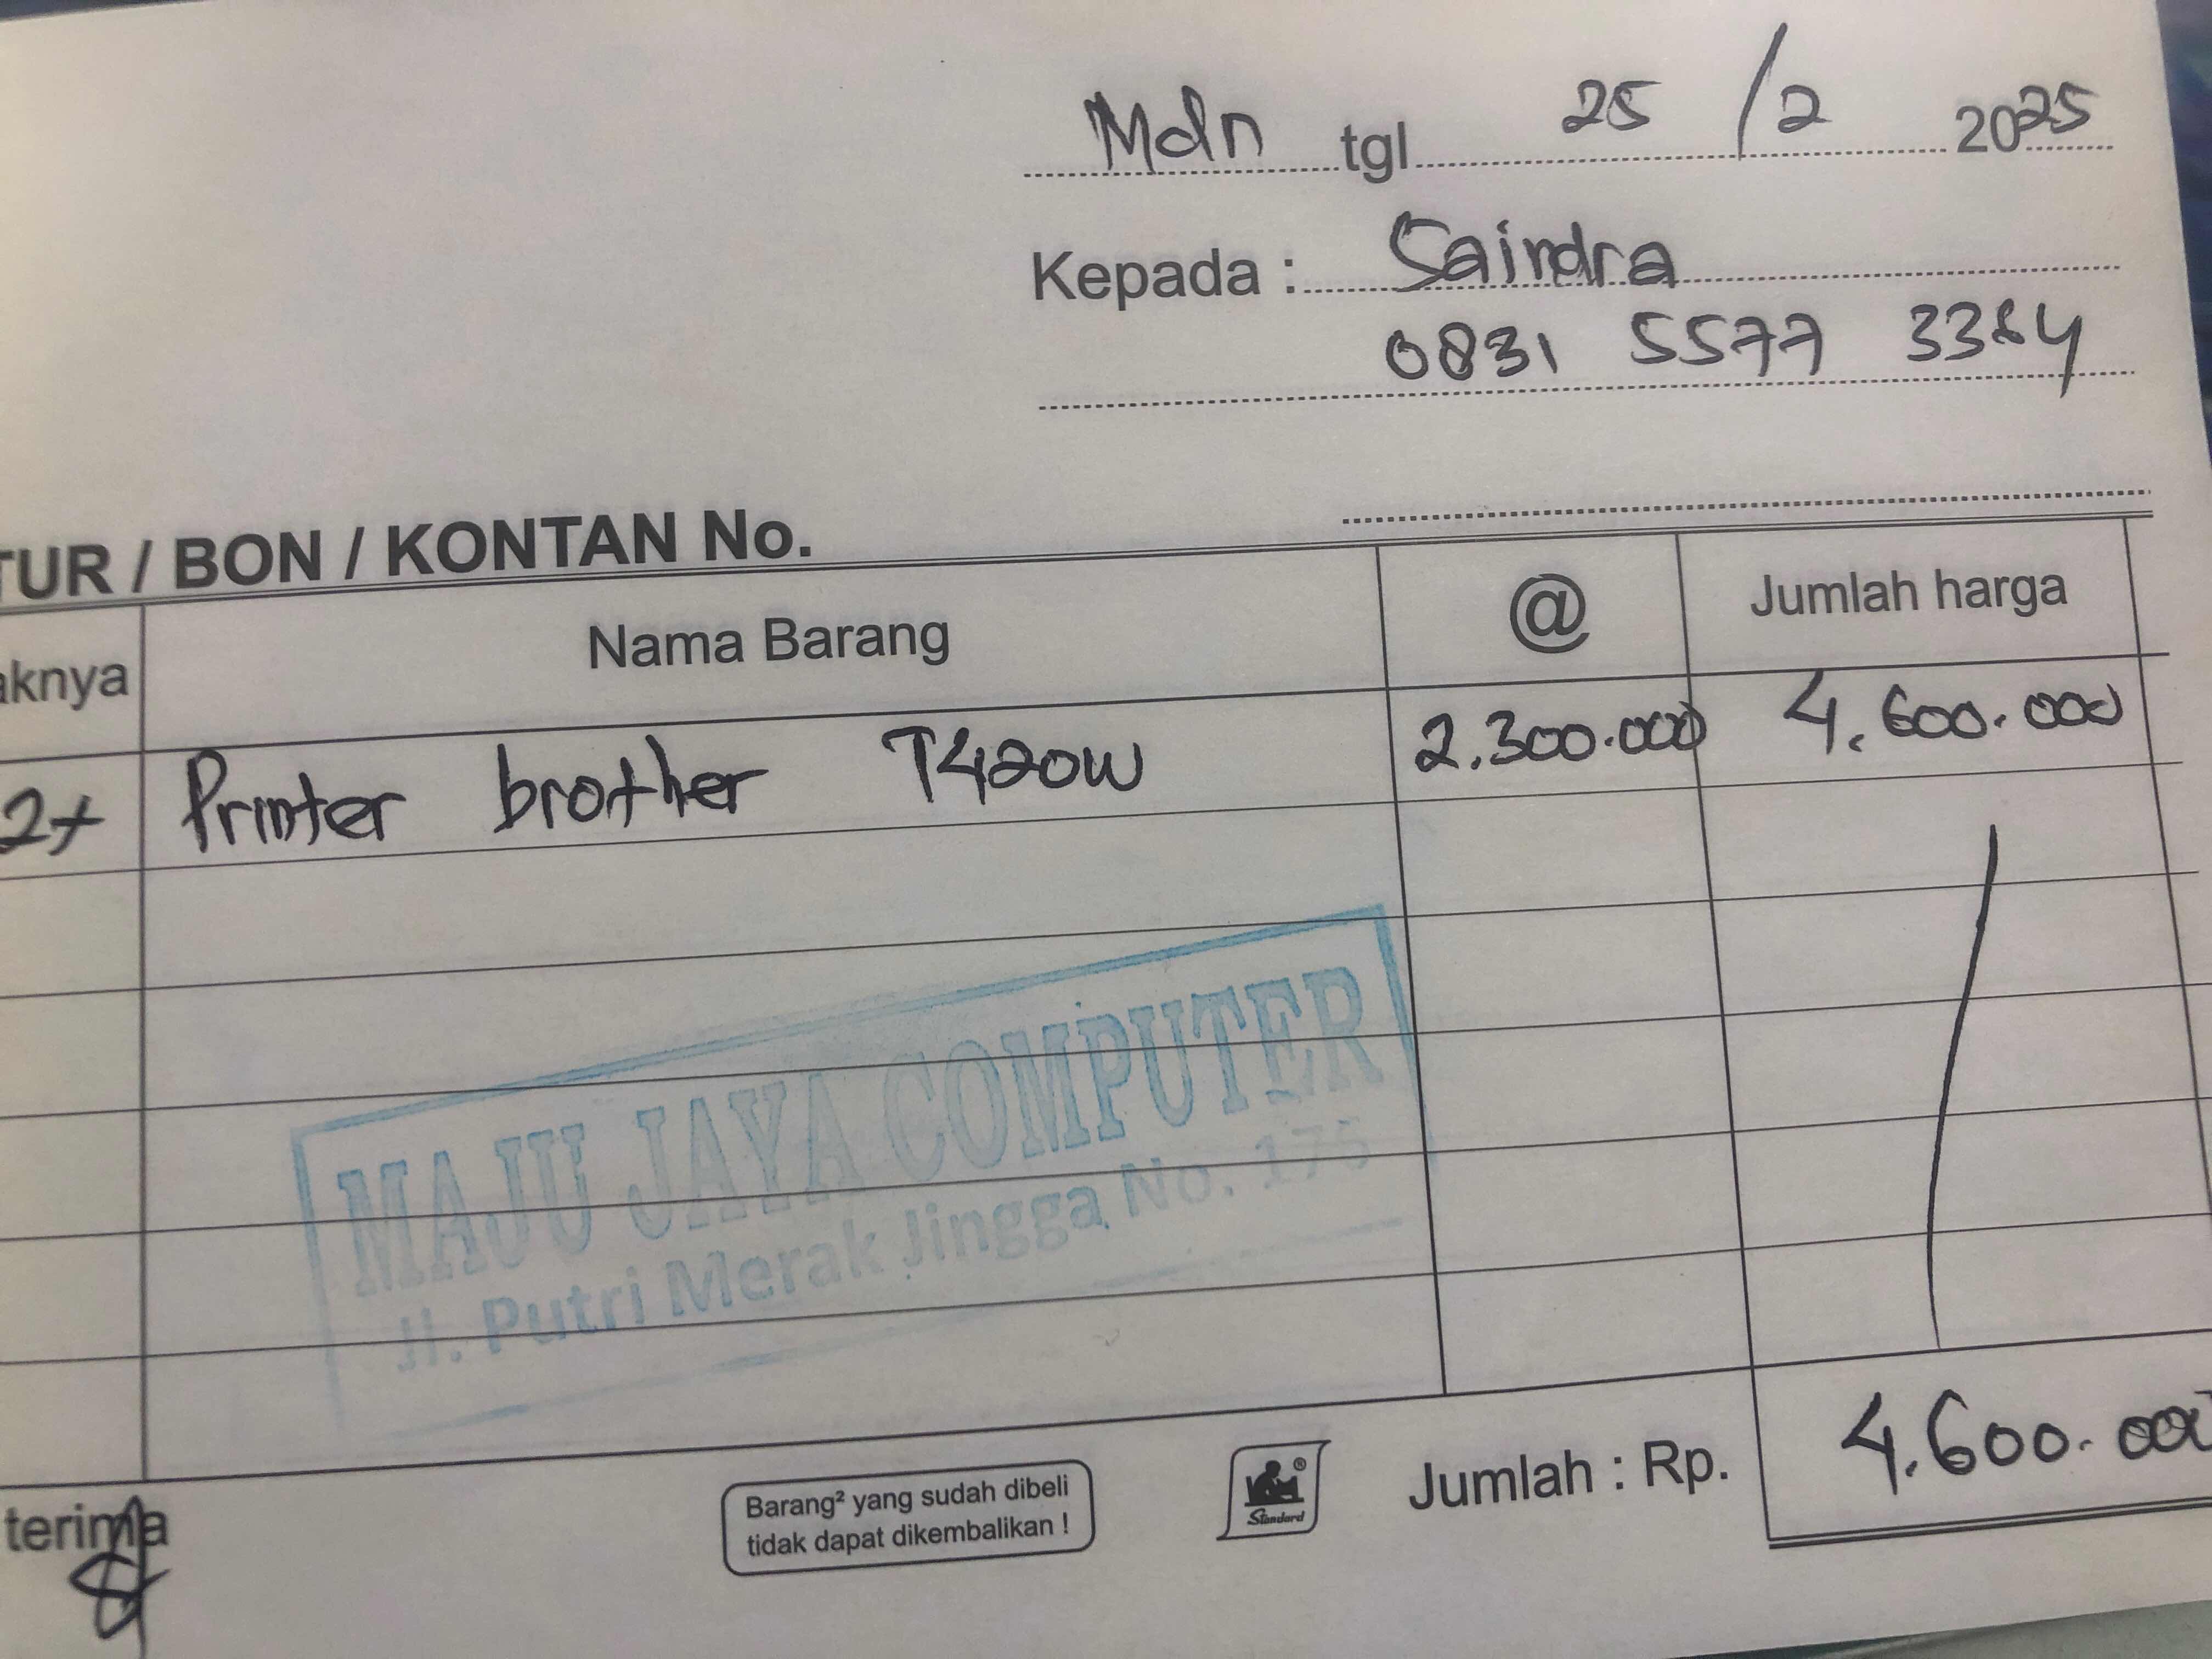 Mdn tgl 25 / 2 2025
Kepada : Saindra
0831 5577 3364
TUR / BON / KONTAN No.
aknya Nama Barang @ Jumlah harga
2x Printer brother T420W 2.300.000 4.600.000
MAJU JAYA COMPUTER
Jl. Putri Merak Jingga No. 175
terima
Barang² yang sudah dibeli
tidak dapat dikembalikan !
® Standard
Jumlah : Rp. 4.600.000